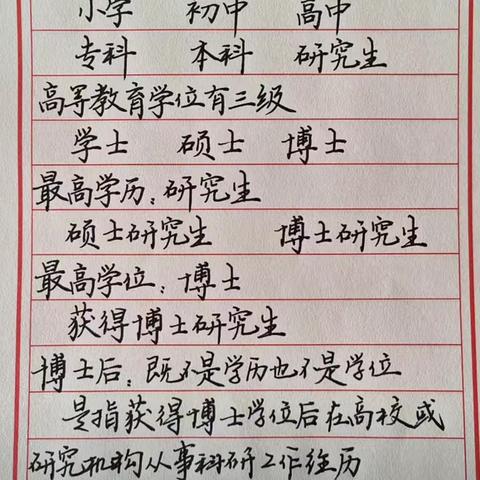 小学 初中 高中
专科 本科 研究生
高等教育学位有三级
学士 硕士 博士
最高学历：研究生
硕士研究生 博士研究生
最高学位：博士
获得博士研究生
博士后：既不是学历也不是学位
是指获得博士学位后在高校或
研究机构从事科研工作经历